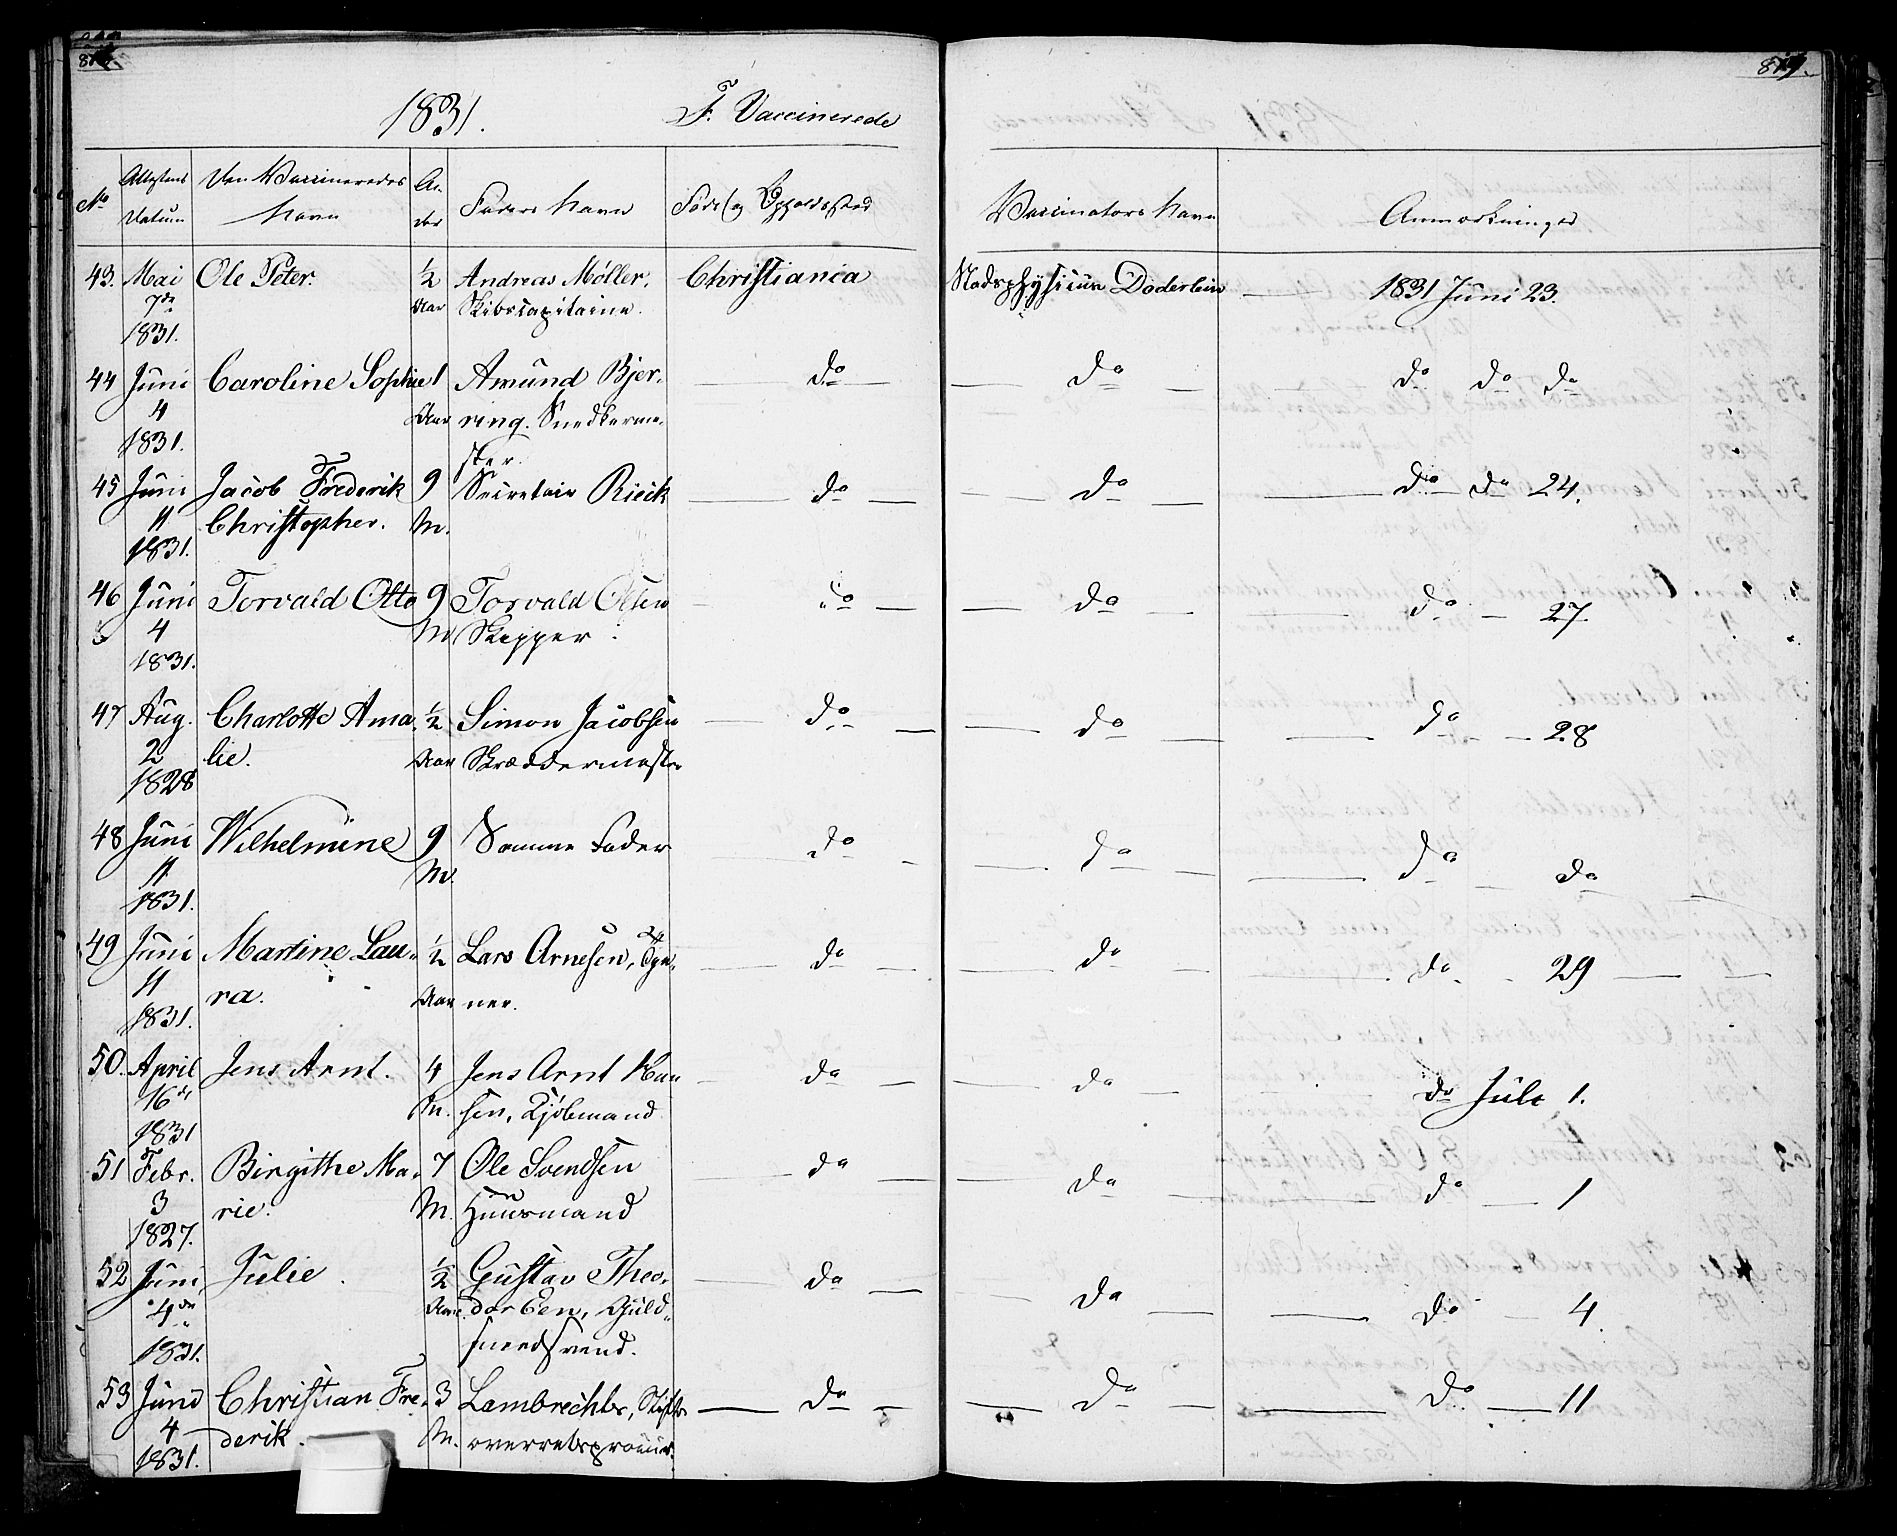 1831. F. Vaccinerede
No Attestens Datum Den Vaccineredes Navn Al- der Faders Navn Føde- og Opholdssted Vaccinators Navn Anmærkninger
43. Mai Ole Peter. 1/2 Andreas Møller, Christiania Stadsphysicus Døderlein — 1831 Juni 23.
7de Aar Skibscapitaine.
1831.
44 Juni Caroline Sophie 1 Amund Bjer- — do — — do — — do do do
4 Aar ring. Snedkerme-
1831. ster.
45 Juni Jacob Frederik 9 Secretair Rieck — do — — do — — do do 24.
11 Christopher. M.
1831.
46 Juni Torvald Otto 9 Torvald Olsen — do — — do — — do — 27.
4 M Skipper.
1831.
47 Aug. Charlotte Ama- 1/2 Simon Jacobsen — do — — do — — do — 28
2 lie. Aar Skræddermester
1828
48 Juni Wilhelmine 9 Samme Fader — do — — do — — do — do
11 M.
1831.
49 Juni Martine Lau- 1/2 Lars Arnesen, — do — — do — — do - 29 —
11 ra. Aar ner.
1831.
50. April Jens Arnt. 4 Jens Arnt Han — do — — do — — do Juli 1.
16de M. sen, Kjøbmand
1831
51 Febr. Birgithe Ma- 7 Ole Svendsen — do — do — — do — 1
3 rie. M. Huusmand
1827.
52 Juni Julie. 1/2 Gustav Theo- — do — — do — — do — 4.
4de Aar. dor Een, Guld-
1831. smedsvend.
53 Juni Christian Fre- 3 Lambrechts, Stifts- — do — — do — — do — 11
4 derik. M. overretsprocur.
1831.